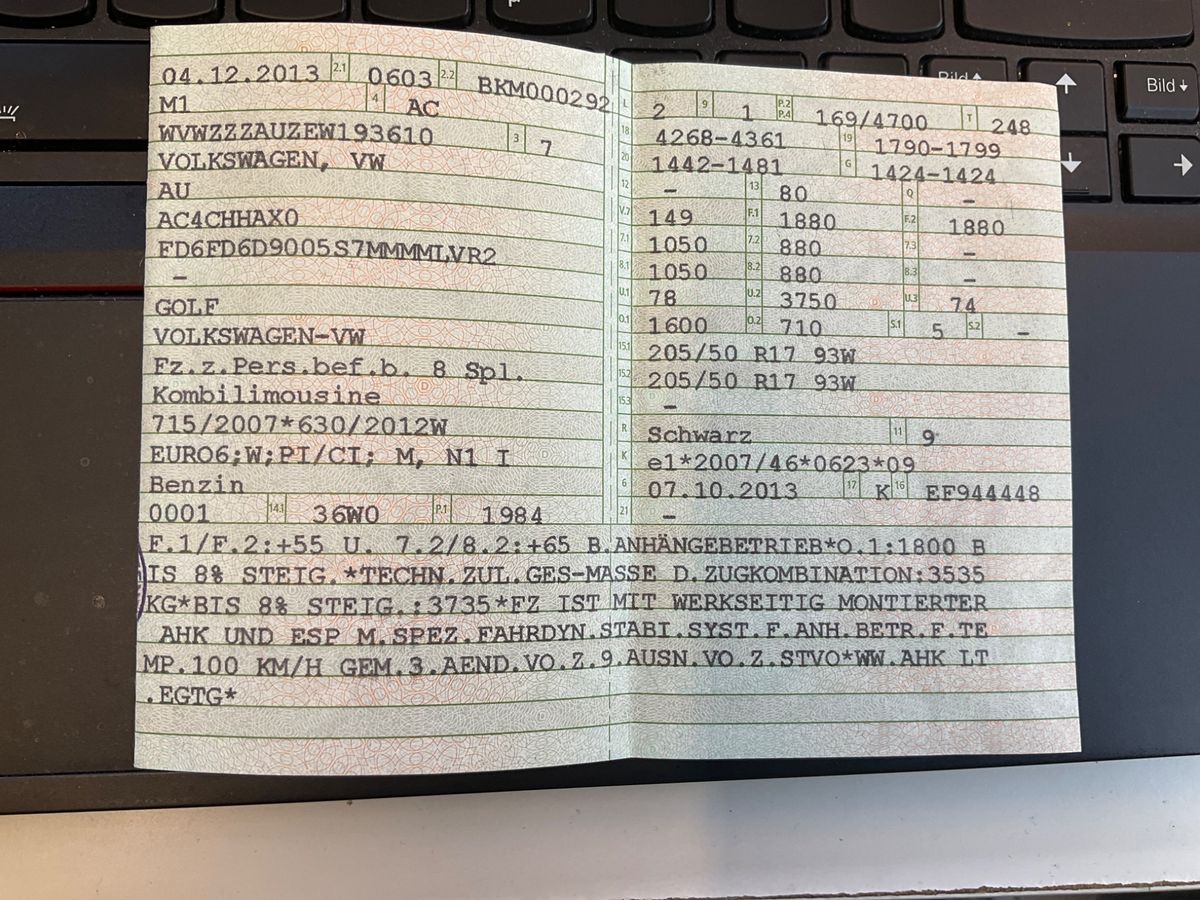 04.12.2013 2.1 0603 2.2 BKM000292
M1 4 AC
WVWZZZAUZEW193610 3 7
VOLKSWAGEN, VW
AU
AC4CHHAX0
FD6FD6D9005S7MMMMLVR2
–
GOLF
VOLKSWAGEN-VW
Fz.z.Pers.bef.b. 8 Spl.
Kombilimousine
715/2007*630/2012W
EURO6;W;PI/CI; M, N1 I
Benzin
0001 14.1 36W0 P.1 1984
L 2 9 1 P.2 P.4 169/4700 T 248
18 4268-4361 19 1790-1799
20 1442-1481 G 1424-1424
12 – 13 80 Q –
V.7 149 F.1 1880 F.2 1880
7.1 1050 7.2 880 7.3 –
8.1 1050 8.2 880 8.3 –
U.1 78 U.2 3750 U.3 74
O.1 1600 O.2 710 S.1 5 S.2 –
15.1 205/50 R17 93W
15.2 205/50 R17 93W
15.3 –
R Schwarz 11 9
K e1*2007/46*0623*09
6 07.10.2013 17 K 16 EF944448
21 –
F.1/F.2:+55 U. 7.2/8.2:+65 B.ANHÄNGEBETRIEB*O.1:1800 B
IS 8% STEIG.*TECHN.ZUL.GES-MASSE D.ZUGKOMBINATION:3535
KG*BIS 8% STEIG.:3735*FZ IST MIT WERKSEITIG MONTIERTER
AHK UND ESP M.SPEZ.FAHRDYN.STABI.SYST.F.ANH.BETR.F.TE
MP.100 KM/H GEM.3.AEND.VO.Z.9.AUSN.VO.Z.STVO*WW.AHK LT
.EGTG*
Bild
Bild ↓